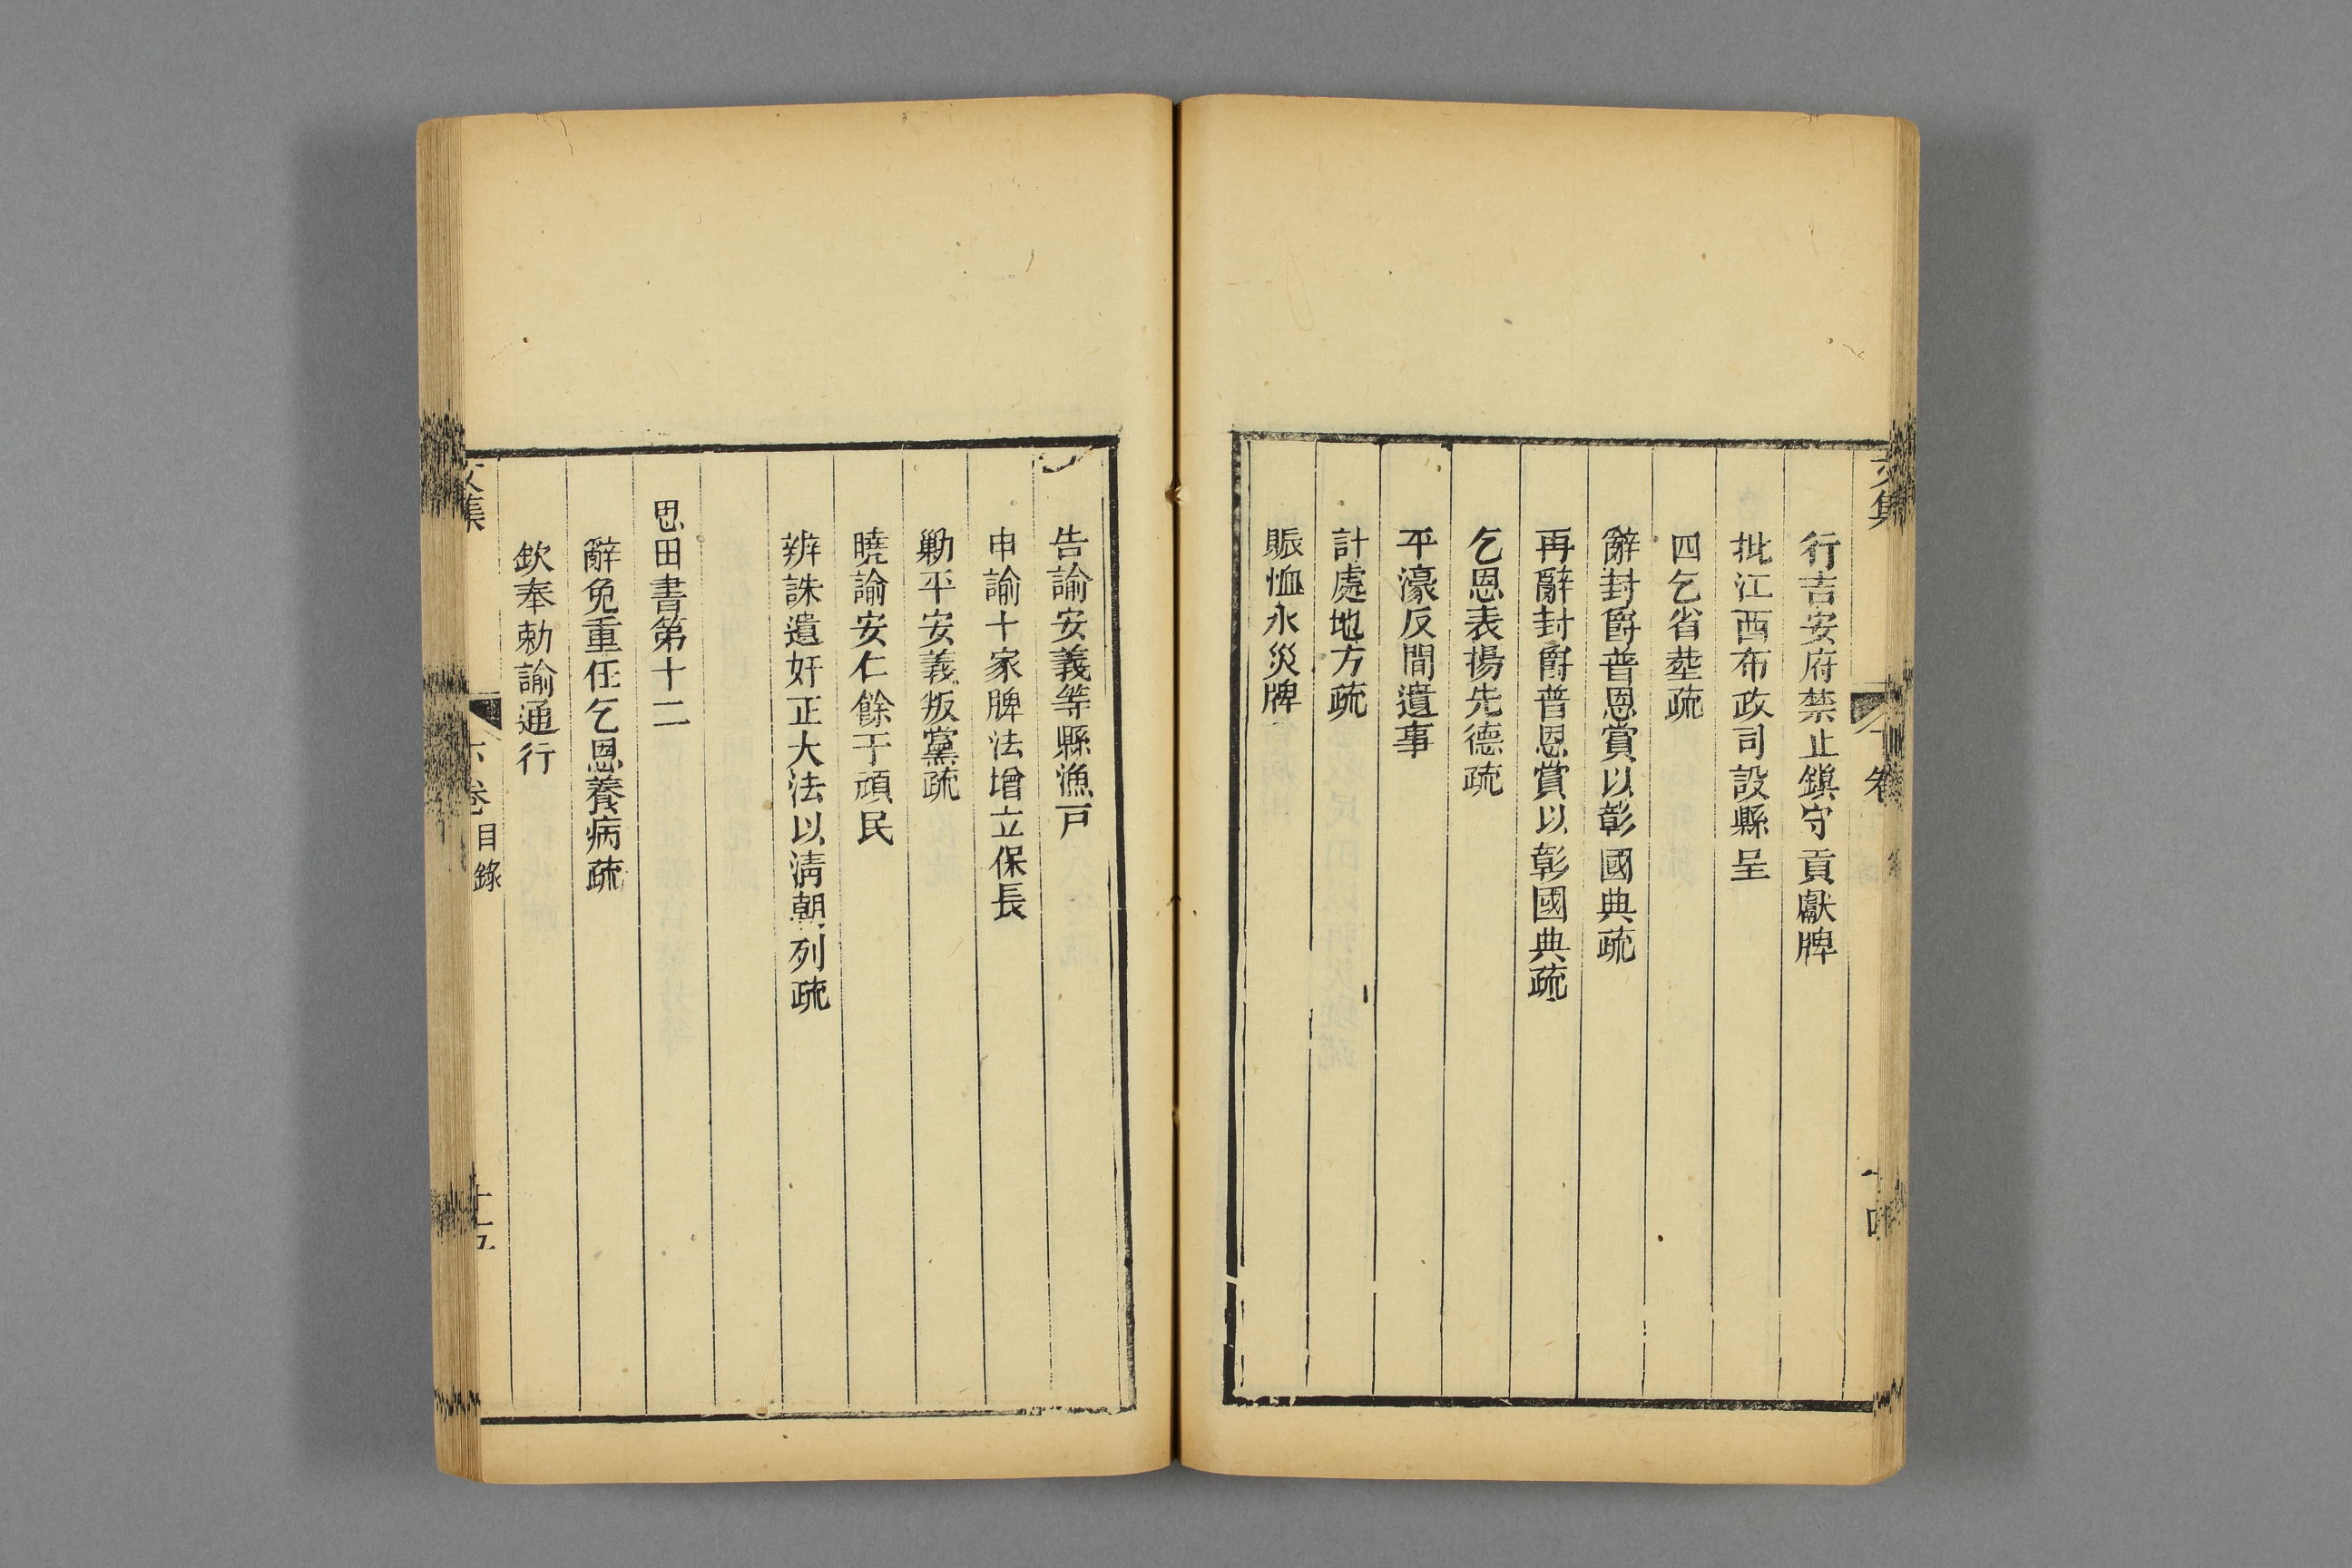 文集
行吉安府禁止鎮守貢獻牌
批江西布政司設縣呈
四乞省塟疏
辭封爵普恩賞以彰國典疏
再辭封爵普恩賞以彰國典疏
乞恩表揚先德疏
平濠反間遺事
計處地方疏
賑恤水災牌
告諭安義等縣漁戶
申諭十家牌法增立保長
勦平安義叛黨疏
曉諭安仁餘干頑民
辨誅遺奸正大法以清朝列疏
思田書第十二
辭免重任乞恩養病疏
欽奉勅諭通行
文集
目錄